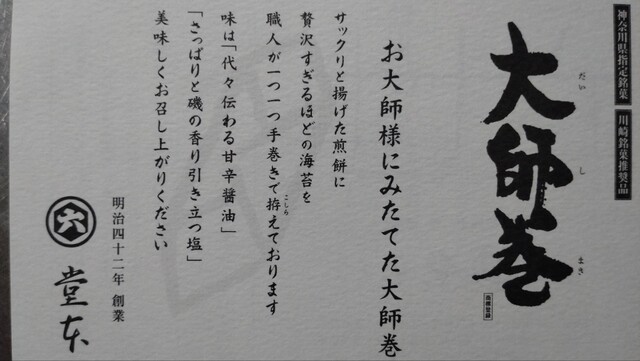 神奈川県指定銘菓
川崎銘菓推奨品
大師巻
だい
し
まき
商標登録
お大師様にみたてた大師巻
サックリと揚げた煎餅に
贅沢すぎるほどの海苔を
職人が一つ一つ手巻きで拵えております
こしら
味は「代々伝わる甘辛醤油」
「さっぱりと磯の香り引き立つ塩」
美味しくお召し上がりください
明治四十二年 創業
六
堂本